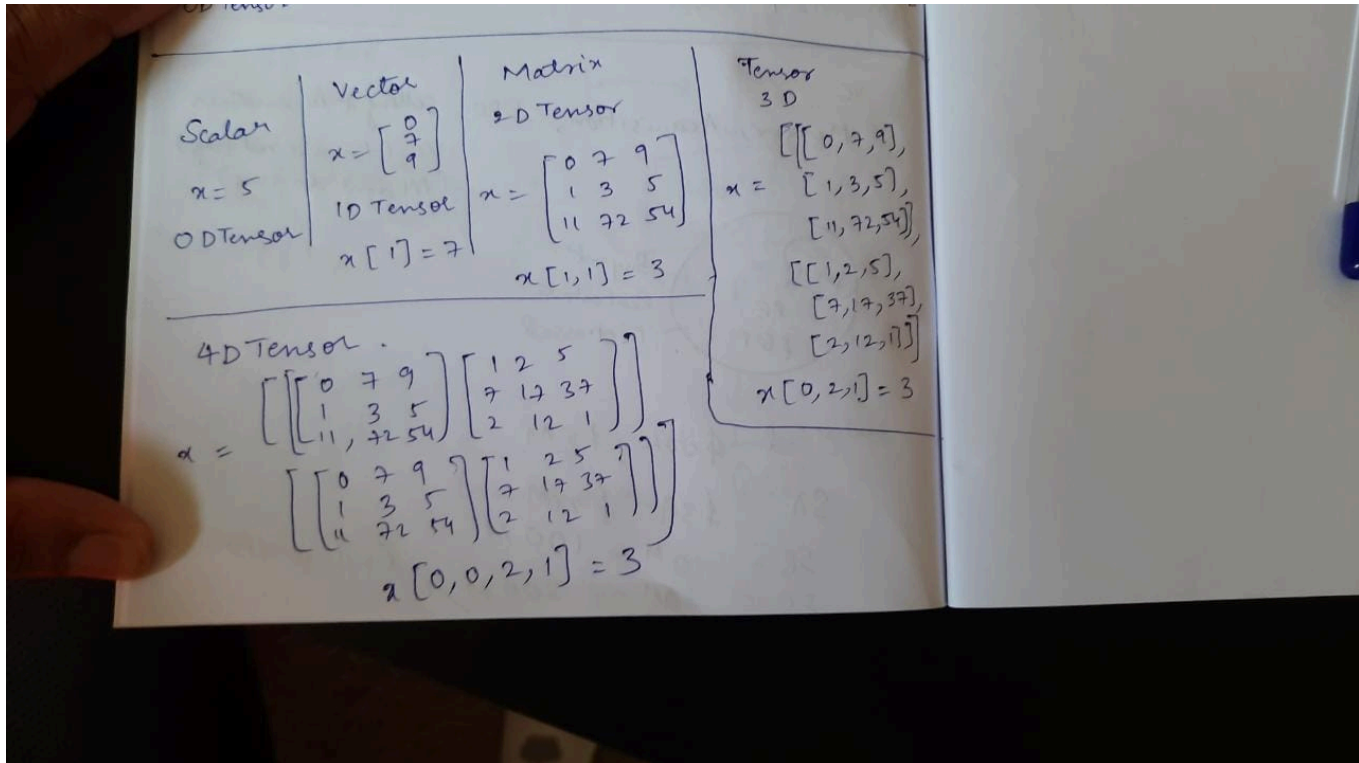 Scalar
x = 5
0 D Tensor
Vector
x = [0
7
9]
1D Tensor
x [1] = 7
Matrix
2D Tensor
x = [0 7 9
1 3 5
11 72 54]
x [1,1] = 3
Tensor
3 D
[[[0,7,9],
x = [1,3,5],
[11,72,54]],
[[1,2,5],
[7,17,37],
[2,12,1]]]
x [0,2,1] = 3
4D Tensor.
x = [[[0 7 9 ] [1 2 5 ]]
1 3 5 7 17 37
11, 72 54 2 12 1
[[0 7 9 ] [1 2 5 ]]]
1 3 5 7 17 37
11 72 54 2 12 1
x [0,0,2,1] = 3